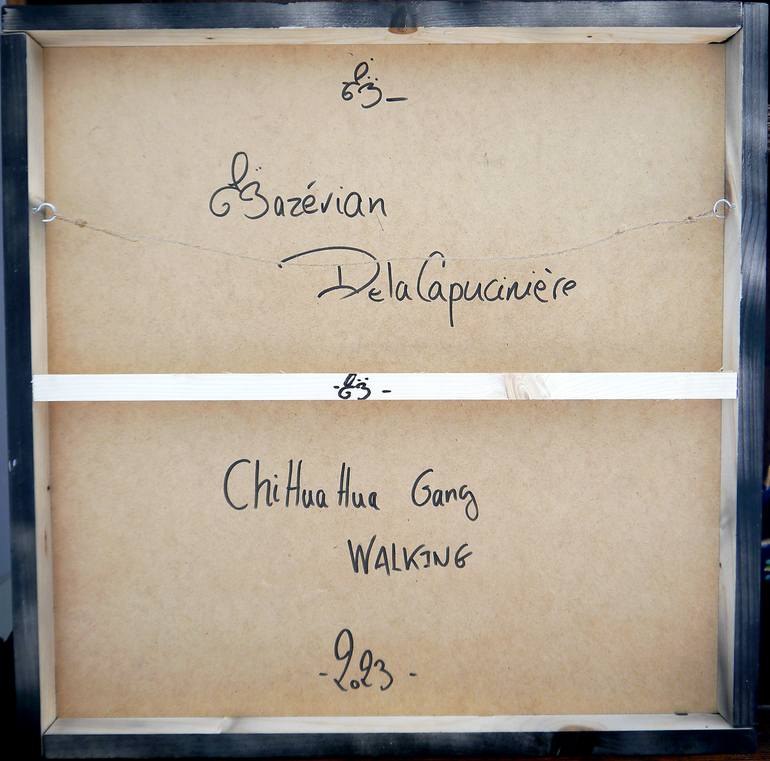 Bazérian
DelaCapucinière
ChiHuaHua Gang
WALKING
-2023-